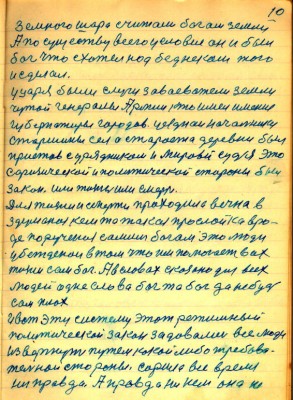 10
Земного шара считали богам земли
А по существу всего условия он и был
бог что схотел под беднеками того
и сделал.
у царя были слуги завоеватели земли
чутой генералы Армии кто имел имения
губернаторы городов. уездная началники
старшины села староста деревни был
приотов с урядником и мировой судья Это
с физической и политической стороны был
закон. или тюрьма или смерть.
Для жизни и смерти проходила вечна в
кем та такая прослойка вро-
де поручения самим богам это люди
убежденая в том что им помогает в ах
жизни сам бог. А в словах сказано для всех
людей одне слова бог та бог да небуд
сам плох
И вот эту систему этот режимный
политический закон задовали все люди
извергнут путем какой либо требова-
тельной стороны. все время
ни правда. А правда ни кем она не